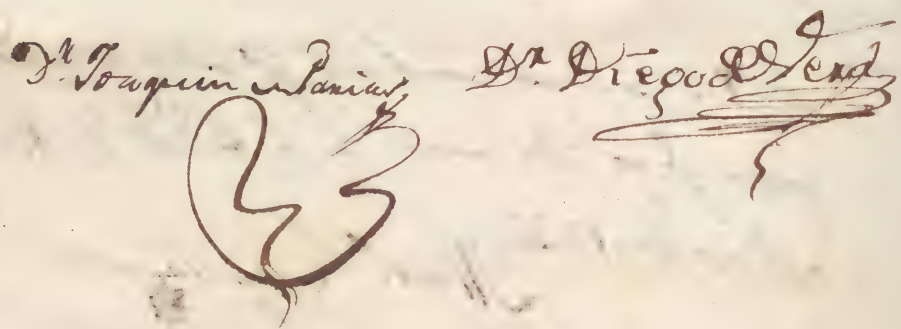 Dn Joaquin Parias Dn Diego de Vera